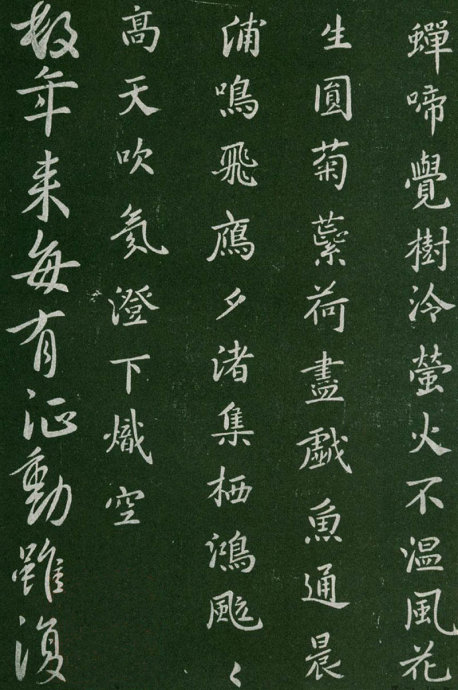 蟬啼覺樹冷螢火不温風花
生圓菊蘂荷盡戲魚通晨
浦鳴飛鴈夕渚集栖鴻颯々
高天吹氛澄下熾空
數年来每有征動雖復